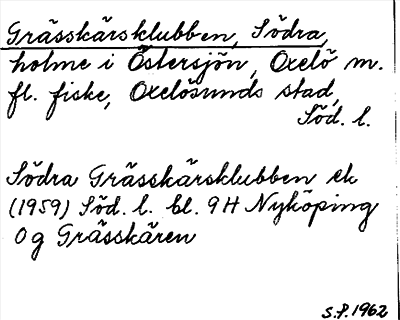 Grässkärsklubben, Södra,
holme i Östersjön, Oxelö m.
fl. fiske, Oxelösunds stad,
Söd. l.
Södra Grässkärsklubben ek
(1959) Söd. l. bl. 9H Nyköping
0g Grässkären
S.P. 1962